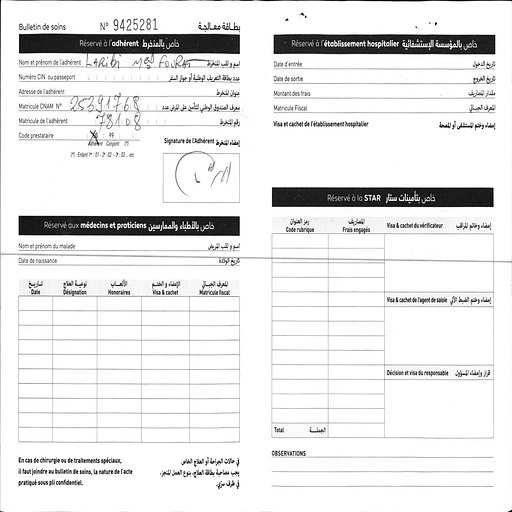 Bulletin de soins N° 9425281 بطاقة معالجة
Réservé à l'adhérent خاص بالمنخرط
Nom et prénom de l'adhérent LARIBI Med FOURAT إسم و لقب المنخرط
Numéro CIN ou passeport عدد بطاقة التعريف الوطنية أو جواز السفر
Adresse de l'adhérent عنوان المنخرط
Matricule CNAM N° 25391768 معرف الصندوق الوطني للتأمين على المرض عدد
Matricule de l'adhérent 78108 رقم المنخرط
Code prestataire 99
Adhérent Conjoint (*)
(*) : Enfant 1er : 01 - 2e : 02 - 3e : 03 ... etc
Signature de l'Adhérent إمضاء المنخرط
Réservé aux médecins et praticiens خاص بالأطباء والممارسين
Nom et prénom du malade إسم و لقب المريض
Date de naissance تاريخ الولادة
تاريخ نوعية العلاج الأتعاب الإمضاء و الختم المعرف الجبائي
Date Désignation Honoraires Visa & cachet Matricule fiscal
En cas de chirurgie ou de traitements spéciaux,
il faut joindre au bulletin de soins, la nature de l'acte
pratiqué sous pli confidentiel.
في حالات الجراحة أو العلاج الخاص
يجب مصاحبة بطاقة العلاج، بنوع العمل المنجز،
في ظرف سري.
Réservé à l'établissement hospitalier خاص بالمؤسسة الإستشفائية
Date d'entrée تاريخ الدخول
Date de sortie تاريخ الخروج
Montant des frais مقدار المصاريف
Matricule Fiscal المعرف الجبائي
Visa et cachet de l'établissement hospitalier إمضاء وختم المستشفى أو المصحة
Réservé à la STAR خاص بتأمينات ستار
رمز العنوان المصاريف
Code rubrique Frais engagés
Visa & cachet du vérificateur إمضاء وخاتم المراقب
Visa & cachet de l'agent de saisie إمضاء وختم الضبط الآلي
Décision et visa du responsable قرار وإمضاء المسؤول
Total الجملة
OBSERVATIONS